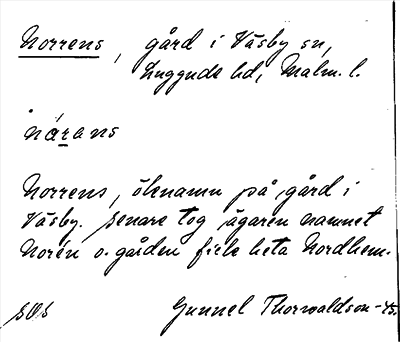 Norrens, gård i Väsby sn,
Luggude hd, Malm. l.
nårans
Norrens, öknamn på gård i
Väsby. Senare tog ägaren namnet
Norén o. gården fick heta Nordhem.
Gunnel Thorwaldson -45.